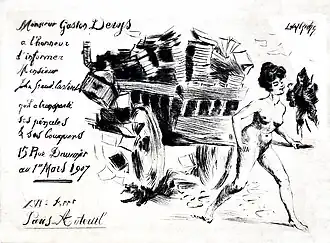 Monsieur Gaston Derys
a l'honneur
d'informer
Monsieur
qu'il a transporté
ses pénates
& ses bouquins
15 Rue
au 1er Mars 1907
XVIe Arrt
Paris Auteuil